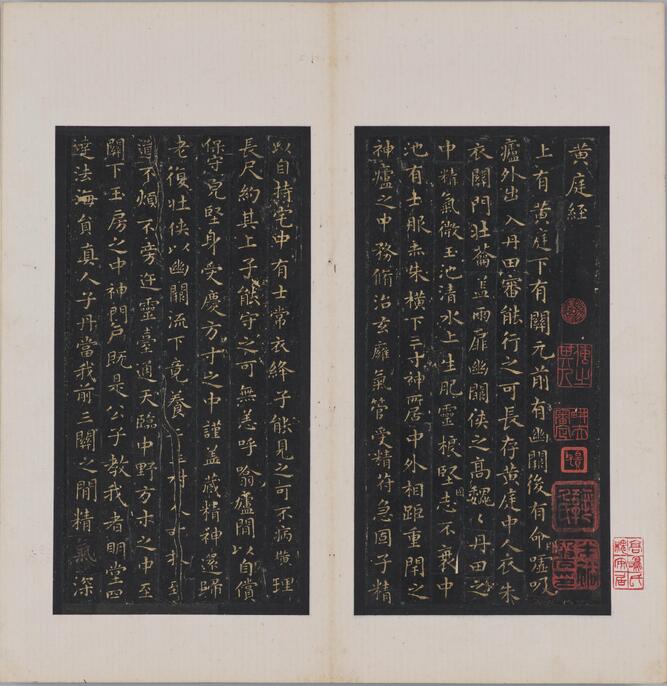 黄庭经
上有黄庭下有關元前有幽關後有命噓吸
廬外出入丹田審能行之可長存黄庭中人衣朱
衣關門壯籥蓋兩扉幽關侠之髙巍〻丹田之
中精氣微玉池清水上生肥靈根堅志不衰中
池有士服赤朱横下三寸神所居中外相距重閇之
神廬之中務脩治玄廱氣管受精符急固子精
以自持宅中有士常衣絳子能見之可不病横理
長尺約其上子能守之可無恙呼噏廬間以自償
保守完堅身受慶方寸之中謹盖藏精神還歸
老復壯侠以幽關流下竟養
道不煩不旁迕靈臺通天臨中野方寸之中至
關下玉房之中神門户既是公子教我者明堂四
達法海員真人子丹當我前三關之間精氣深